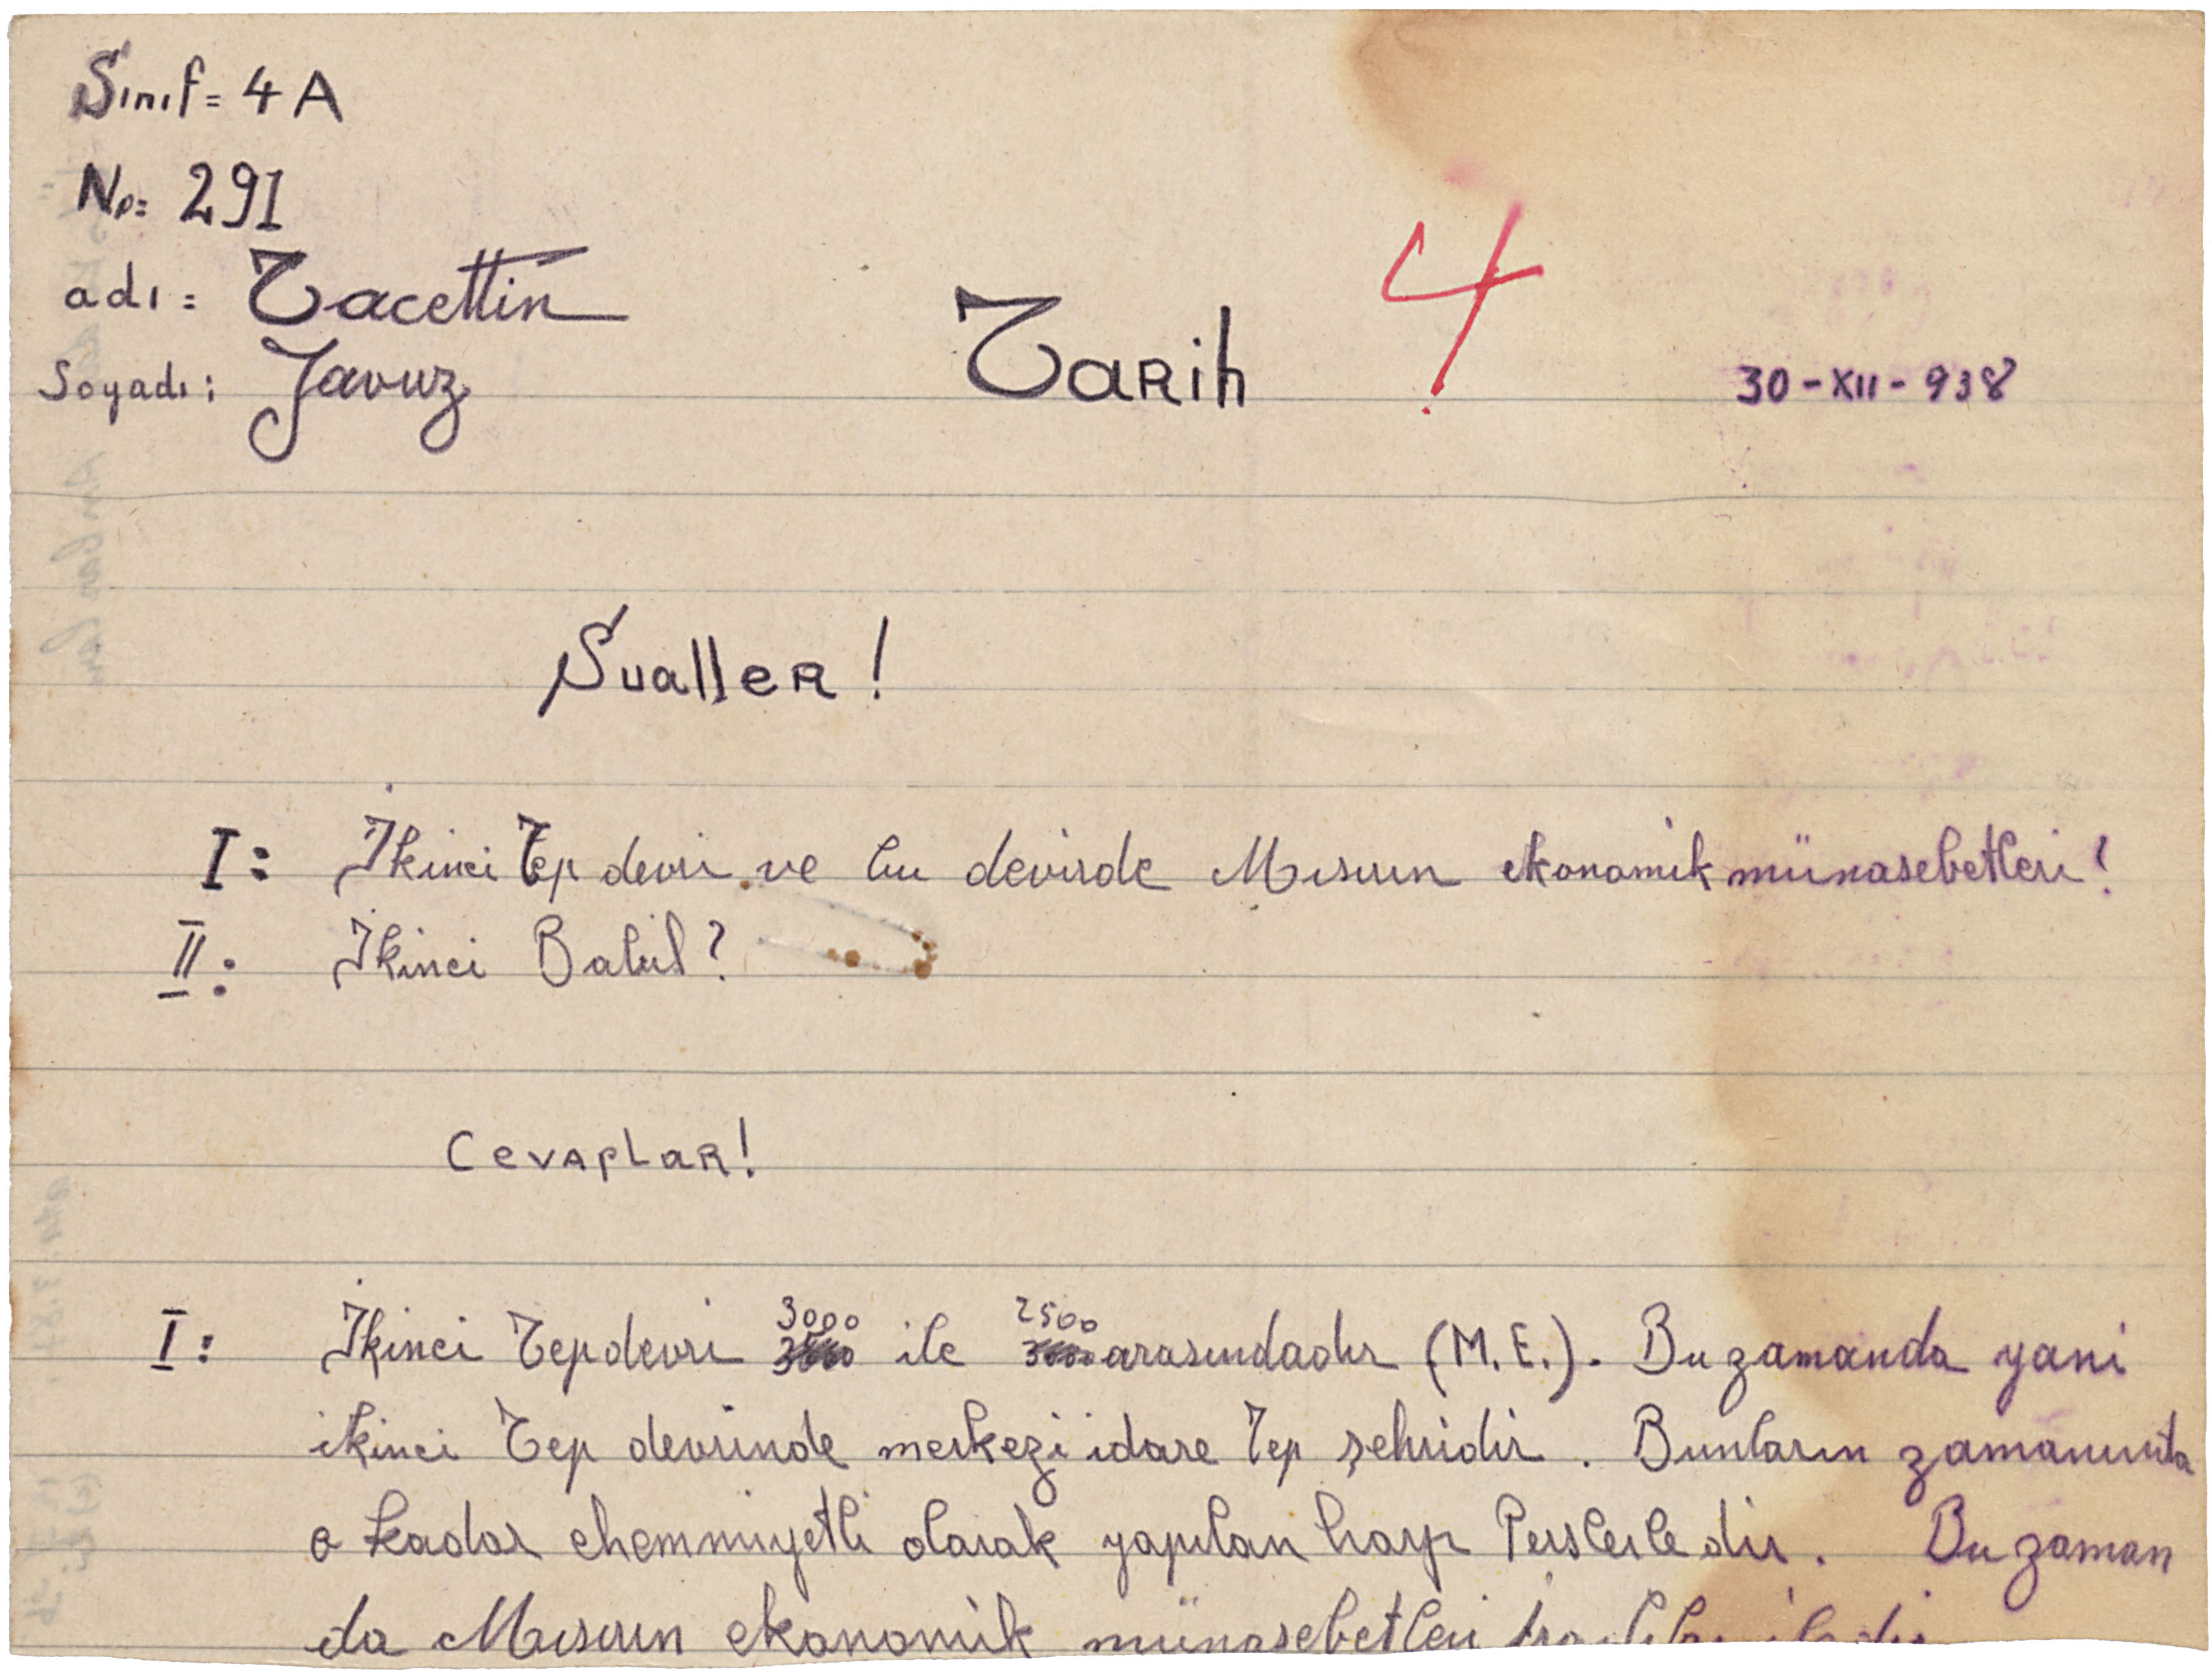 Sınıf = 4 A
No = 291
adı = Tacettin
Soyadı : Yavuz
Tarih 4
30-XII-938
Sualler!
I : İkinci Tep devri ve bu devirde Mısırın ekonomik münasebetleri?
II : İkinci Babil?
Cevaplar!
I : İkinci Tep devri 3000 ile 2500 arasındadır (M.E.). Bu zamanda yani
ikinci Tep devrinde merkezi idare Tep şehridir. Bunların zamanında
o kadar ehemmiyetli olarak yapılan harp Perslerledir. Bu zaman
da Mısırın ekonomik münasebetleri